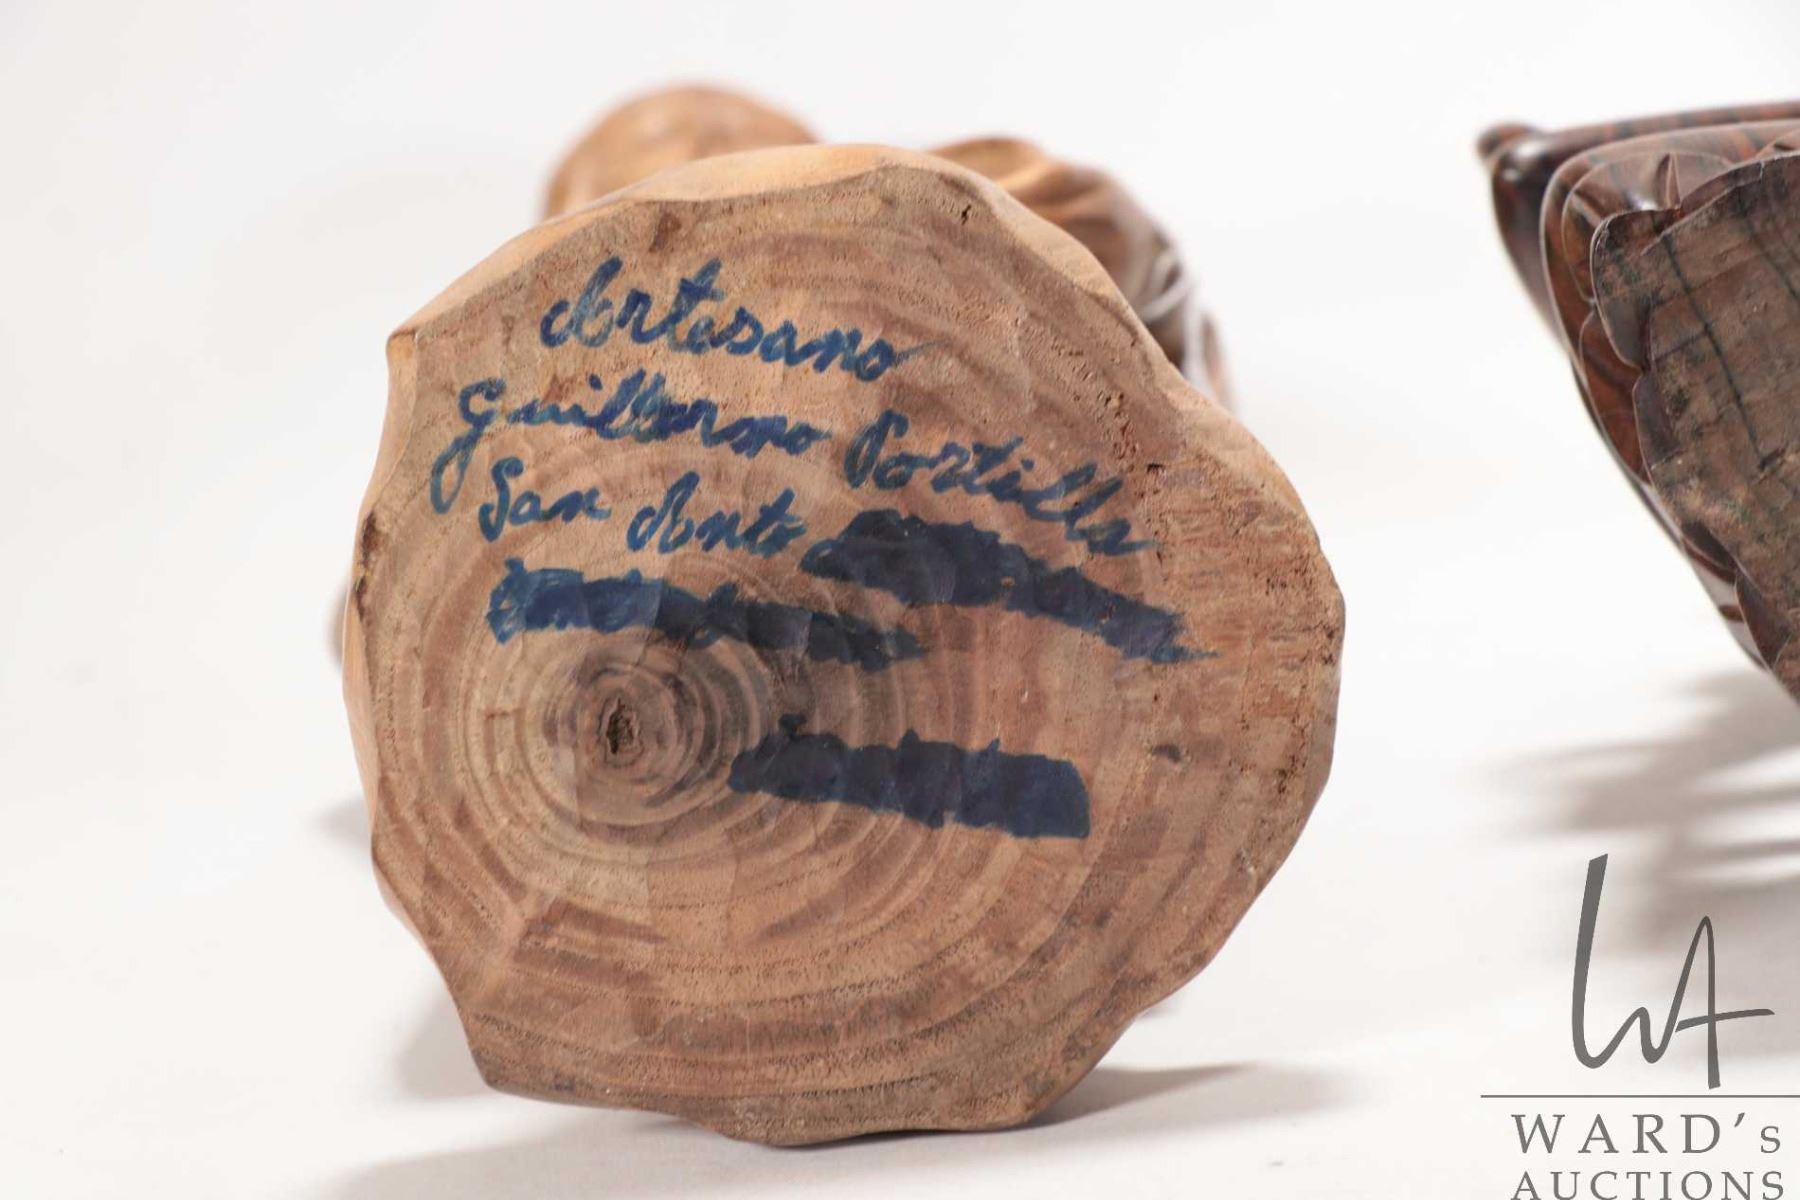 Artesano
Guillermo Portilla
San Anto
WA
WARD's
AUCTIONS